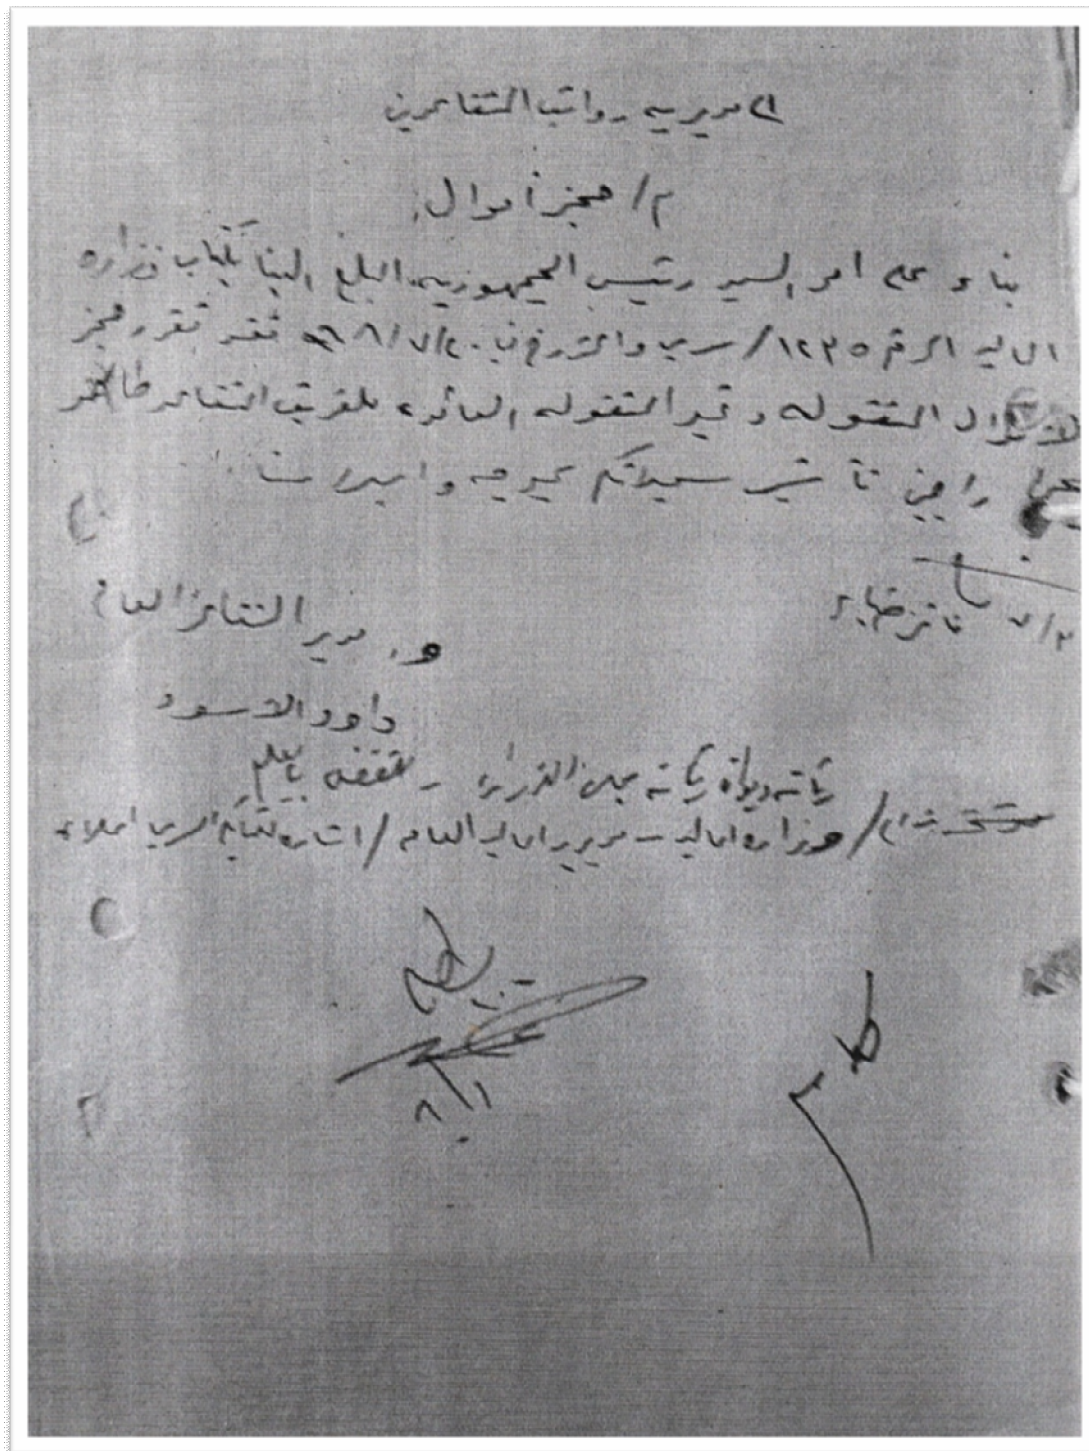 الى مديريه رواتب المتقاعدين
م/ حجز أموال
بناء على امر السيد رئيس الجمهوريه المبلغ الينا بكتاب وزاره
الماليه المرقم ١٢٣٥/ سري والمؤرخ في ٩٦٨/٧/٢٠ فقد تقرر حجز
الاموال المنقوله وغير المنقوله العائده للفريق المتقاعد طاهر
يحيى راجين تأشير سجلاتكم بموجبه واعلامنا
فائز صابر
و. مدير التقاعد العام
داود الاسود
مجلس الوزراء
وزاره الماليه - مديريه الماليه العامه / اشاره لكتابكم السري اعلاه
٨/١